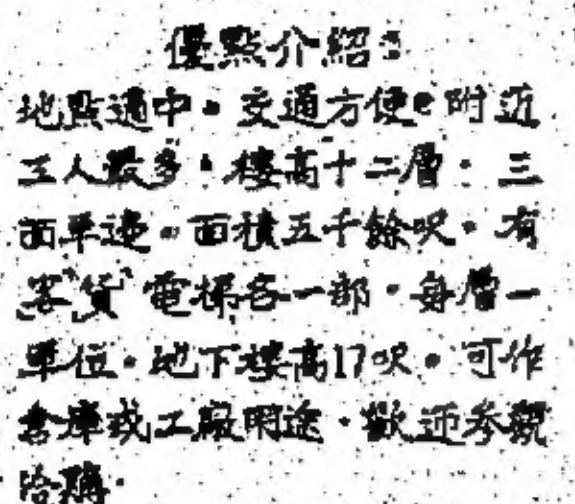 優點介紹：
地點適中。交通方便。附近
工人最多。樓高十二層。三
面單邊。面積五千餘呎。有
客貨電梯各一部。每層一
單位。地下樓高17呎。可作
倉庫或工廠用途。歡迎參觀
洽購。